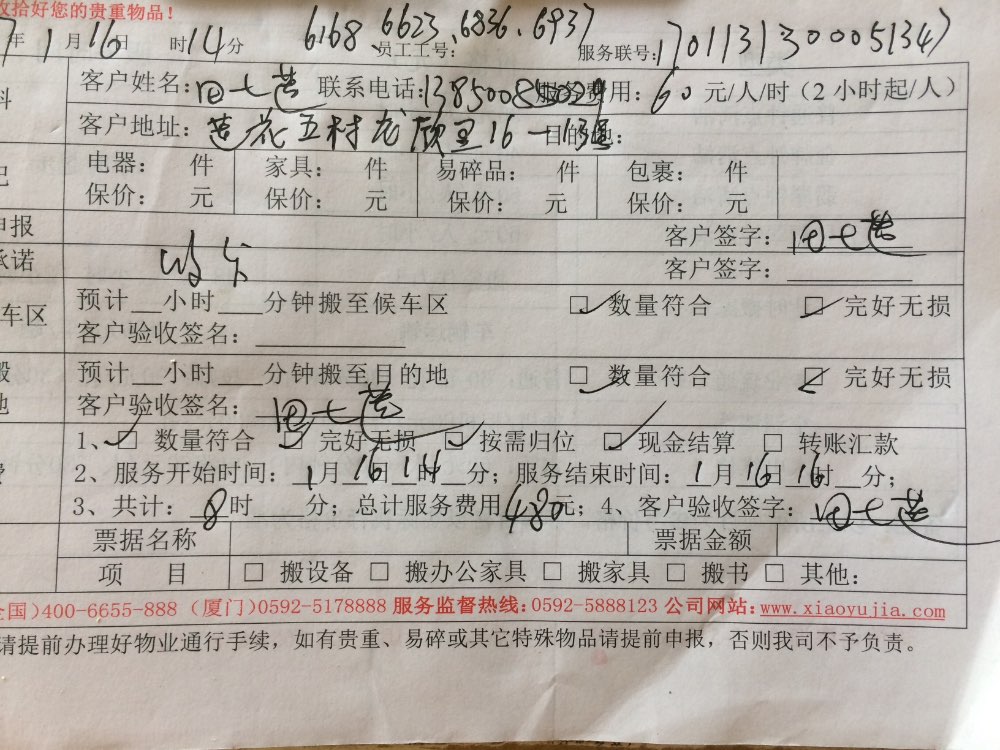 收拾好您的贵重物品！
7年1月16日 时14分 6168 6623.6836.6937 员工工号： 服务联号：1701131300051347
料 客户姓名： 联系电话： 服务费用：60元/人/时（2小时起/人）
客户地址： 五村 16-13 目的地：
记 电器： 件 家具： 件 易碎品： 件 包裹： 件
保价： 元 保价： 元 保价： 元 保价： 元
申报 客户签字：田七莲
承诺 客户签字：
车区 预计__小时____分钟搬至候车区 ☑数量符合 ☑完好无损
客户验收签名：
搬 预计__小时____分钟搬至目的地 ☑数量符合 ☑完好无损
地 客户验收签名：田七莲
1、☑数量符合 ☑完好无损 ☑按需归位 ☑现金结算 □转账汇款
费 2、服务开始时间：1月16日14时__分；服务结束时间：1月16日16时__分；
3、共计：8时____分；总计服务费用480元；4、客户验收签字：田七莲
票据名称 票据金额
项 目 □ 搬设备 □ 搬办公家具 □ 搬家具 □ 搬书 □ 其他：
全国)400-6655-888（厦门)0592-5178888 服务监督热线:0592-5888123 公司网站:www.xiaoyujia.com
请提前办理好物业通行手续，如有贵重、易碎或其它特殊物品请提前申报，否则我司不予负责。